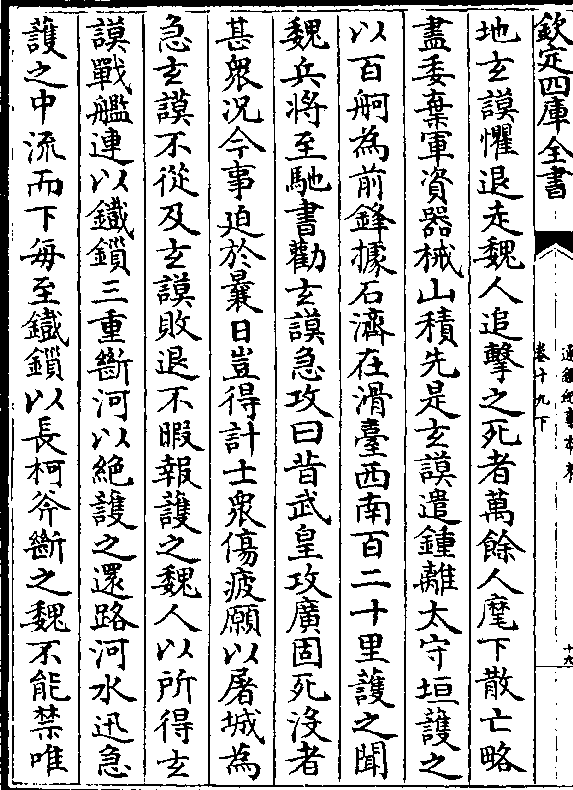 欽定四庫全書
通鑑紀事本末
卷十九下
十六
地玄謨懼退走魏人追擊之死者萬餘人麾下散亡略
盡委棄軍資器械山積先是玄謨遣鍾離太守垣護之
以百舸為前鋒據石濟在滑臺西南百二十里護之聞
魏兵將至馳書勸玄謨急攻曰昔武皇攻廣固死沒者
甚衆況今事迫於曩日豈得計士衆傷疲願以屠城為
急玄謨不從及玄謨敗退不暇報護之魏人以所得玄
謨戰艦連以鐵鎖三重斷河以絶護之還路河水迅急
護之中流而下每至鐵鎖以長柯斧斷之魏不能禁唯